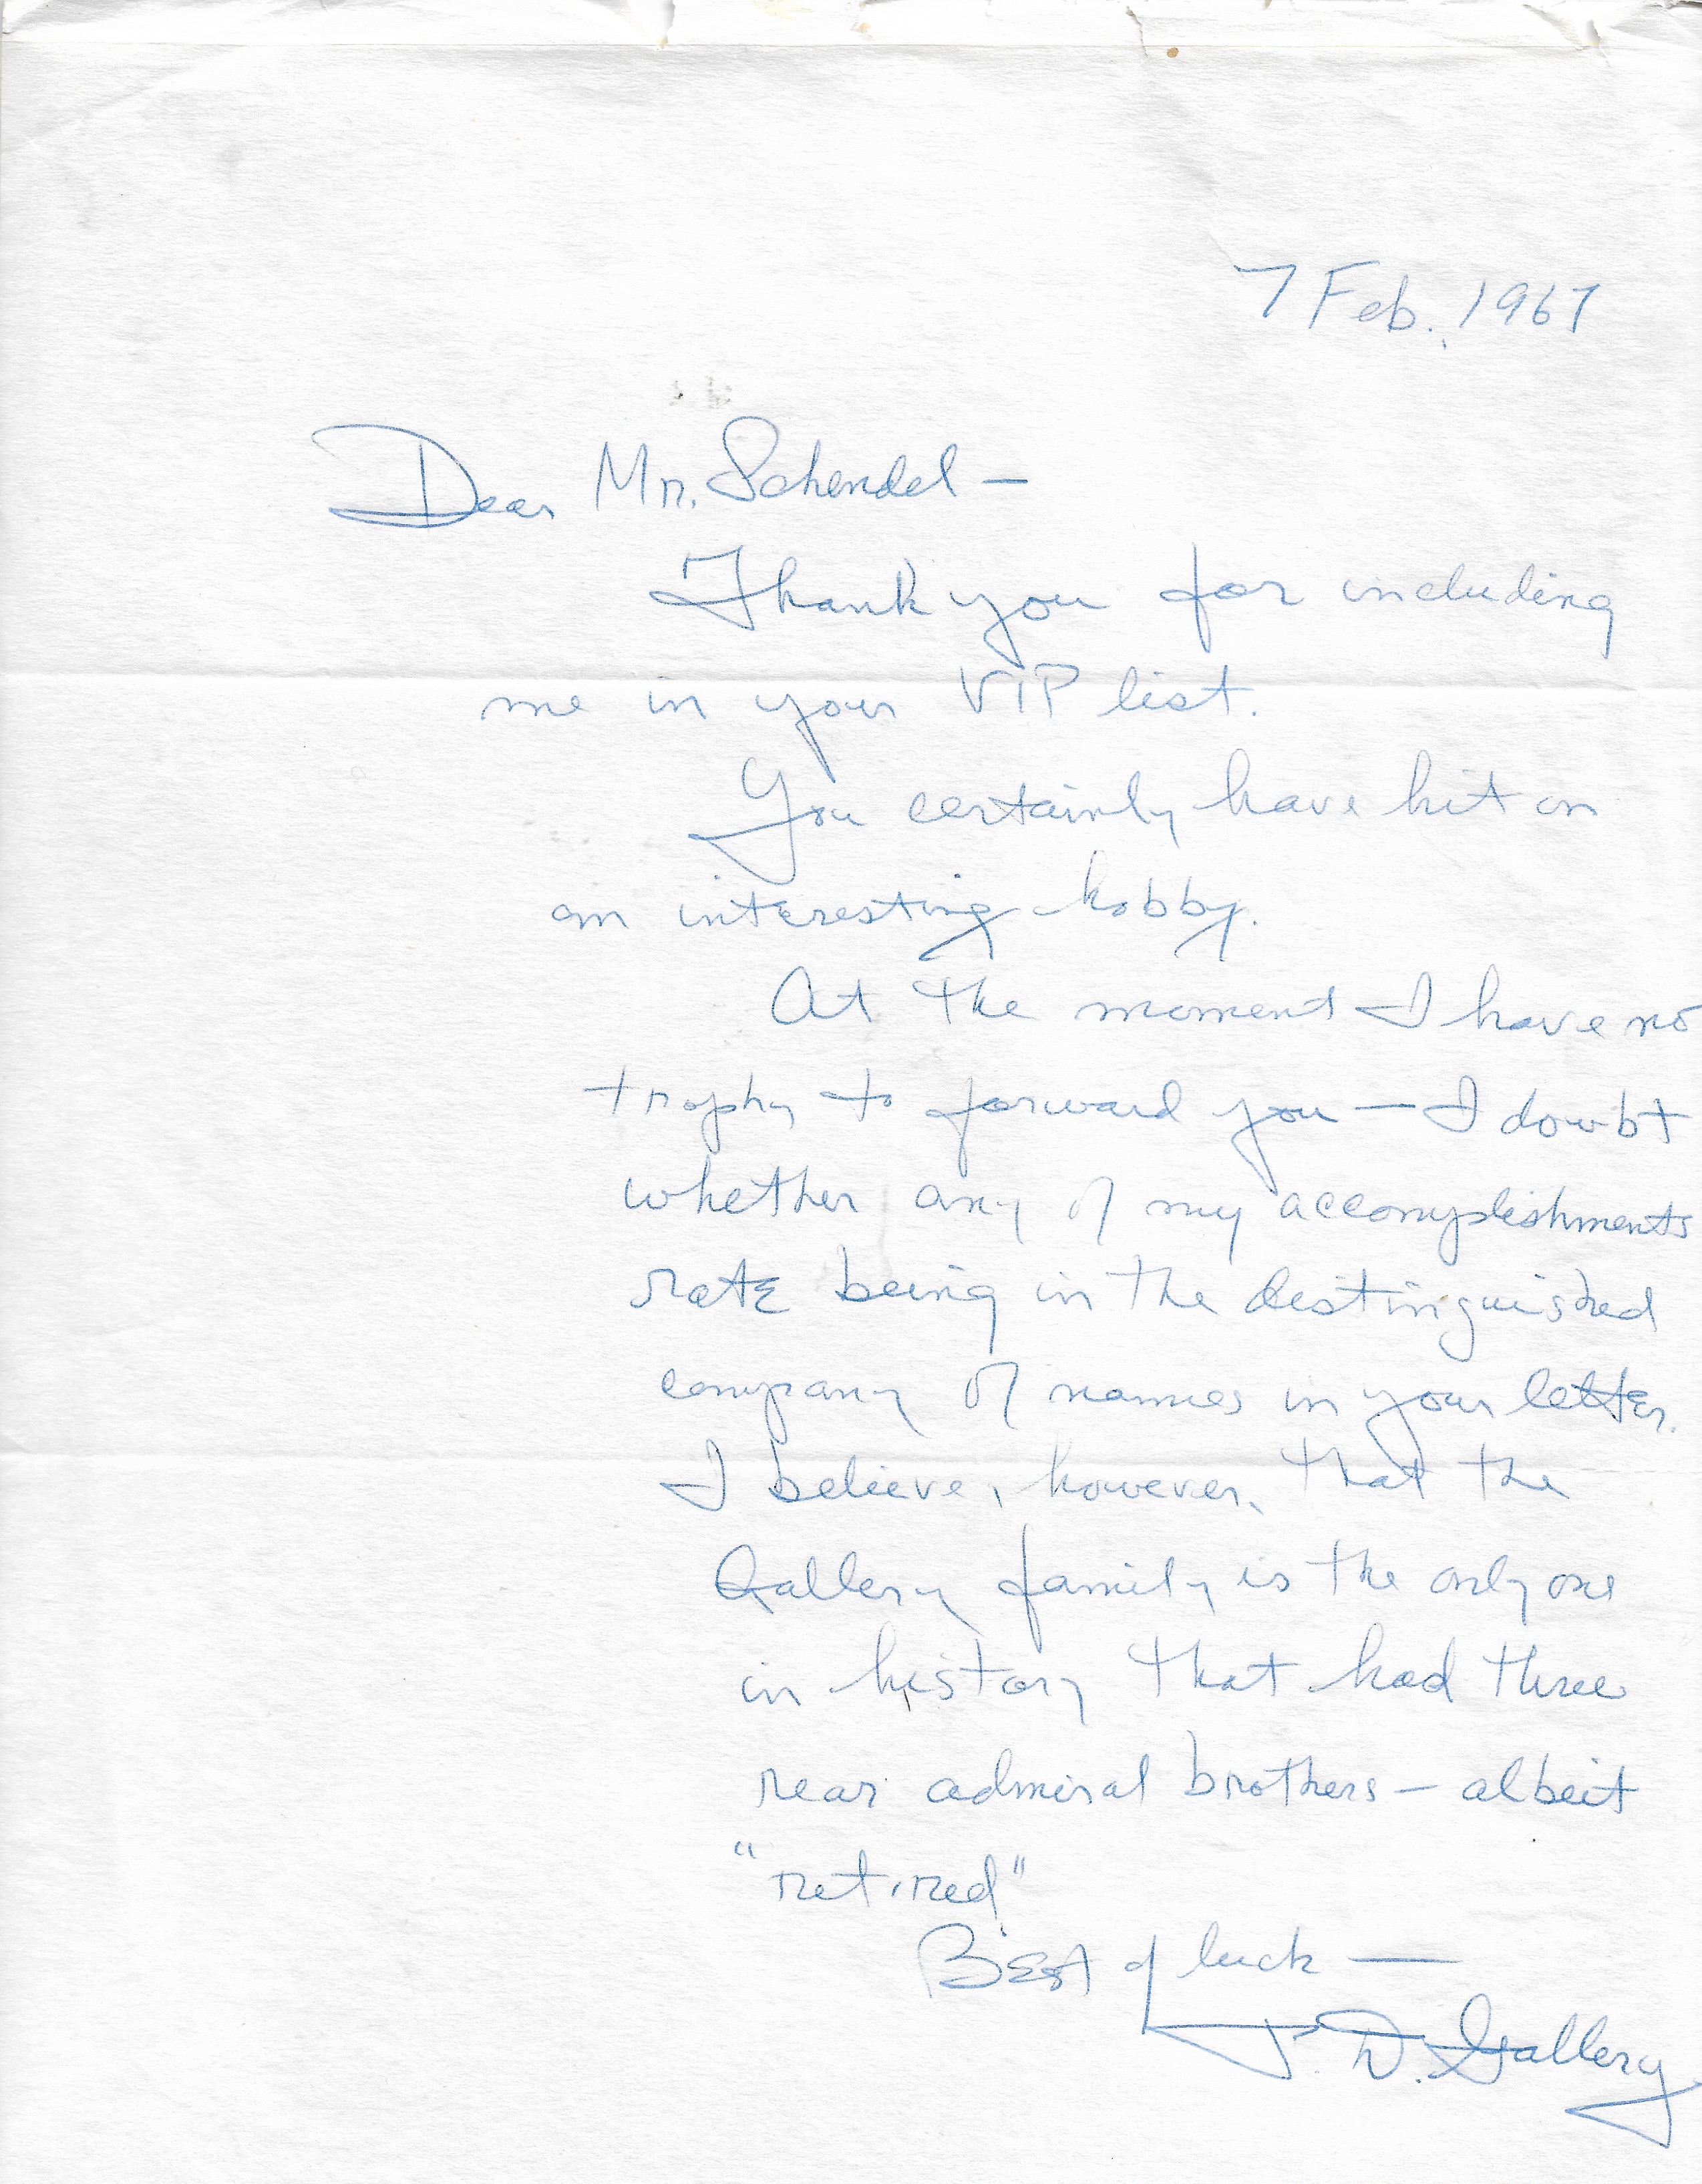 7 Feb. 1967
Dear Mr. Schendel —
Thank you for including
me in your VIP list.
You certainly have hit on
an interesting hobby.
At the moment I have no
trophy to forward you — I doubt
whether any of my accomplishments
rate being in the distinguished
company of names in your letter.
I believe, however, that the
Gallery family is the only one
in history that had three
rear admiral brothers — albeit
"retired"
Best of luck —
D. Gallery